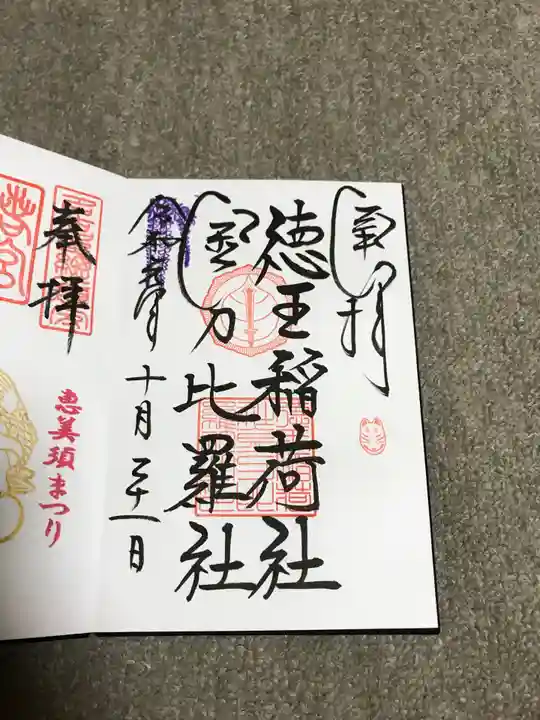 奉拝
徳王稲荷社
金刀比羅社
令和元年
十月二十一日
奉拝
恵美須まつり
若宮